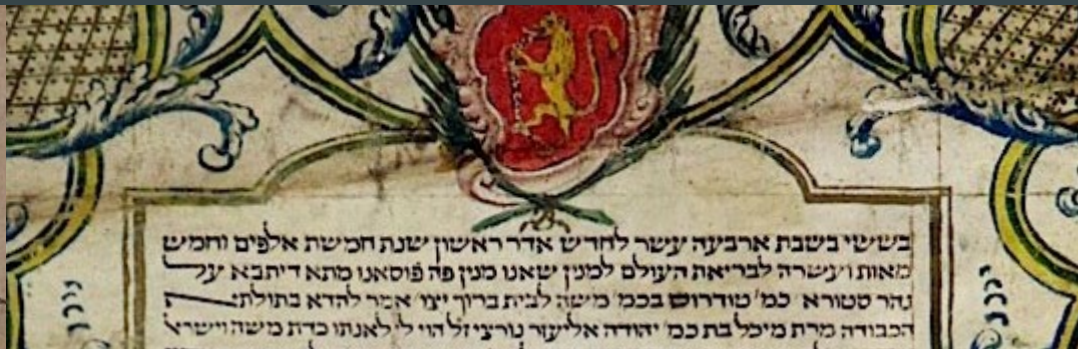 בששי בשבת ארבעה עשר לחדש אדר ראשון שנת חמשת אלפים וחמש
מאות ועשרה לבריאת העולם למנין שאנו מנין פה פוסאנו מתא דיתבא על
נהר סטורא כמ׳ טודרוס בכמ׳ משה לבית ברוך יצו׳ אמר להדא בתולת׳
הכבודה מרת מיכל בת כמ׳ יהודה אליעזר נורצי ז״ל הוי לי לאנתו כדת משה וישראל